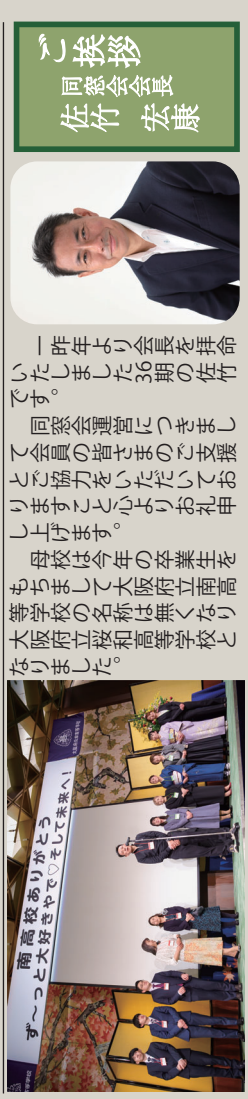 ご挨拶
同窓会会長
佐竹 宏康
一昨年より会長を拝命
いたしました36期の佐竹
です。
同窓会運営につきまし
て会員の皆さまのご支援
とご協力をいただいてお
りますこと心よりお礼申
し上げます。
母校は今年の卒業生を
もちまして大阪府立南高
等学校の名称は無くなり
大阪府立桜和高等学校と
なりました。
南高校ありがとう
ず〜っと大好きやで♡そして未来へ!